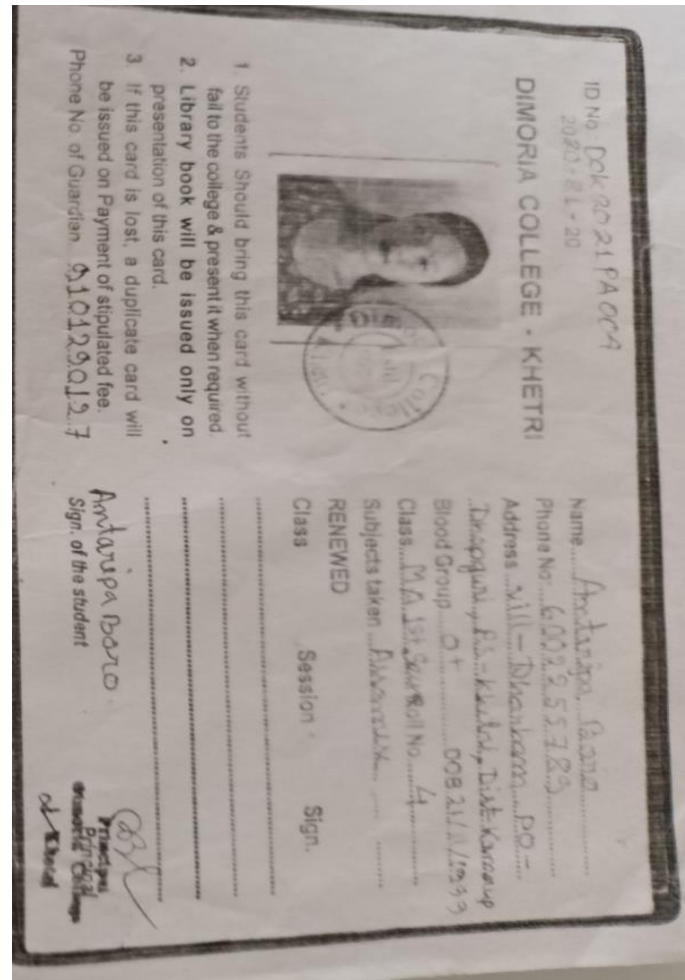 ID No.
2020-21-20
DIMORIA COLLEGE - KHETRI
1. Students Should bring this card without
fail to the college & present it when required.
2. Library book will be issued only on
presentation of this card.
3. If this card is lost, a duplicate card will
be issued on Payment of stipulated fee.
Phone No. of Guardian 9101290127
Name
Phone No. 6002255789
Address Vill - Dharkam PO-
PS - Khetri, Dist. Kamrup
Blood Group O+ DOB
Class M.A 1st Sem Roll No. 4
Subjects taken
RENEWED
Class Session Sign.
Antaripa Boro
Sign. of the student
Principal